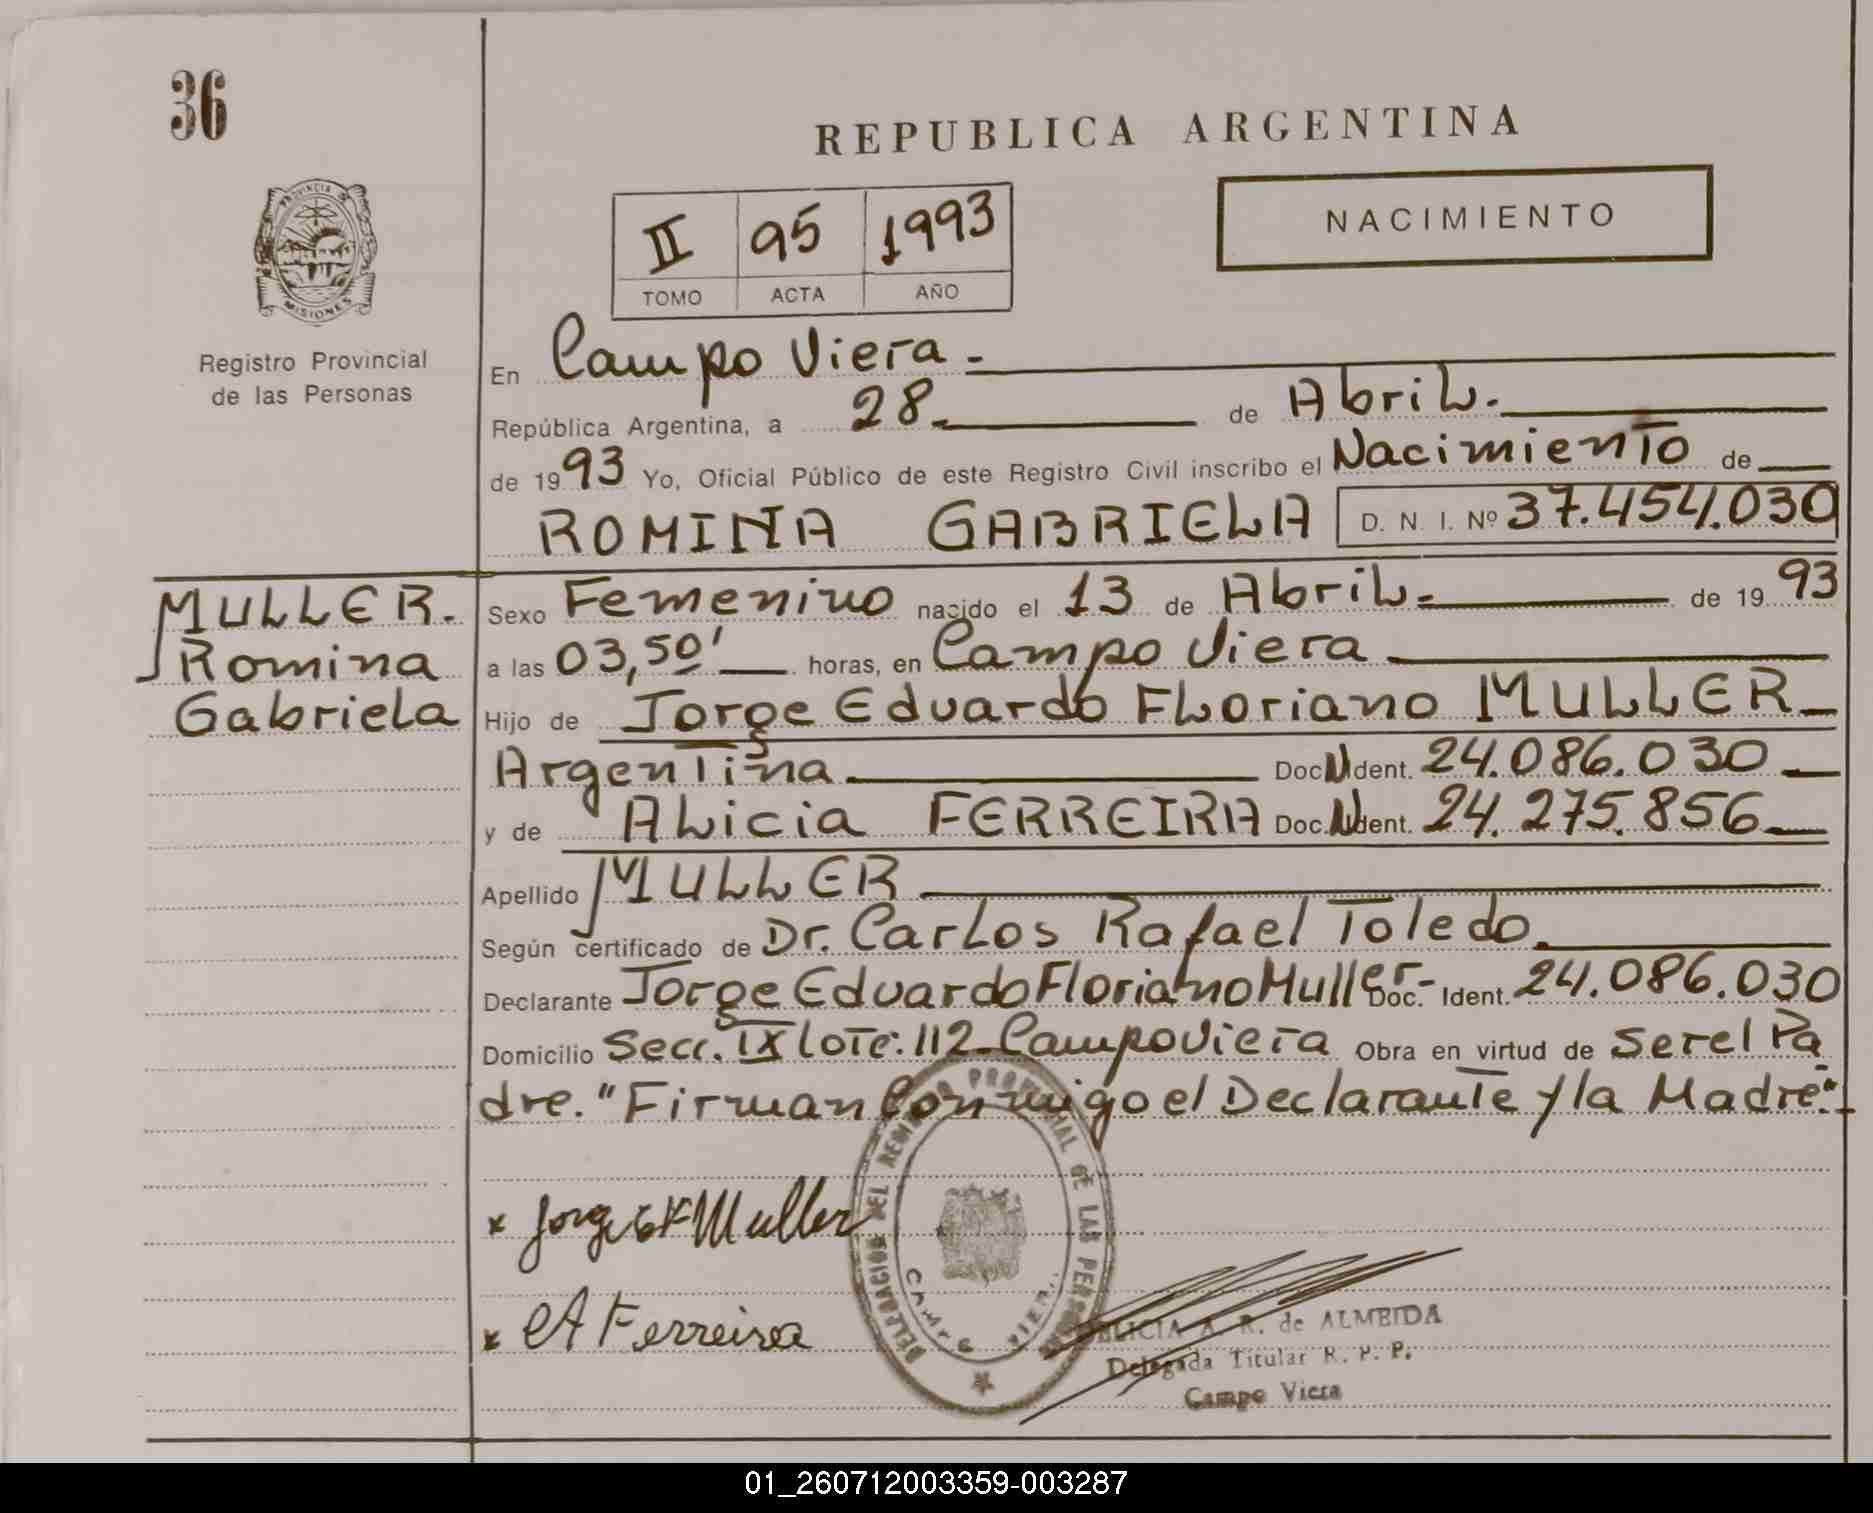 36
REPUBLICA ARGENTINA
PROVINCIA DE
MISIONES
Registro Provincial
de las Personas
II 95 1993
TOMO ACTA AÑO
NACIMIENTO
En Campo Viera.
República Argentina, a 28 de Abril.
de 1993 Yo, Oficial Público de este Registro Civil inscribo el Nacimiento de
ROMINA GABRIELA D. N. I. Nº 37.454.030
MULLER.
Romina
Gabriela
Sexo Femenino nacido el 13 de Abril. de 1993
a las 03,50' horas, en Campo Viera
Hijo de Jorge Eduardo Floriano MULLER
Argentina Doc. N Ident. 24.086.030
y de Alicia FERREIRA Doc. N Ident. 24.275.856
Apellido MULLER
Según certificado de Dr. Carlos Rafael Toledo.
Declarante Jorge Eduardo Floriano Muller- Doc. Ident. 24.086.030
Domicilio Secc. IX lote: 112 - Campo Viera Obra en virtud de ser el Pa
dre. "Firman Conmigo el Declarante y la Madre".
x Jorge E F Muller
x A Ferreira
DELEGACION DEL REGISTRO PROVINCIAL DE LAS PERSONAS
CAMPO VIERA
A. R. de ALMEIDA
Delegada Titular R. P. P.
Campo Viera
01_260712003359-003287